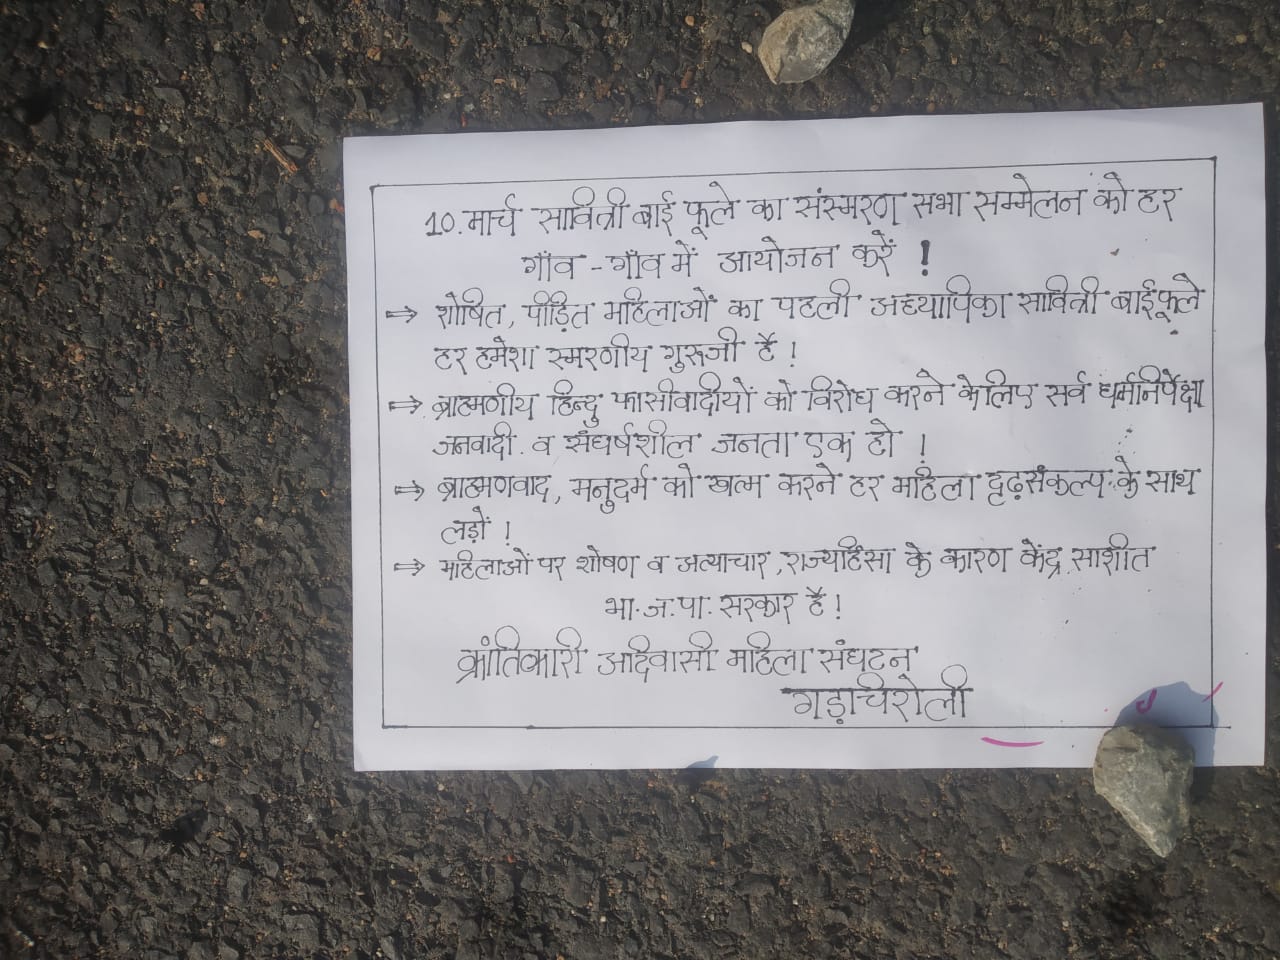 10. मार्च सावित्री बाई फूले का संस्मरण सभा सम्मेलन को हर
गाँव - गाँव में आयोजन करें !
⇒ शोषित, पीड़ित महिलाओं का पहली अध्यापिका सावित्री बाई फूले
हर हमेशा स्मरणीय गुरुजी है !
⇒ ब्राह्मणीय हिन्दु फासीवादीयों को विरोध करने केलिए सर्व धर्मनिर्पेक्ष
जनवादी. व संघर्षशील जनता एक हो !
⇒ ब्राह्मणवाद, मनुदर्म को खत्म करने हर महिला दृढ़संकल्प के साथ
लड़ों !
⇒ महिलाओं पर शोषण व अत्याचार, राज्यहिंसा के कारण केंद्र साशीत
भा.ज.पा. सरकार है !
क्रांतिकारी आदिवासी महिला संघटन
गड़चिरोली